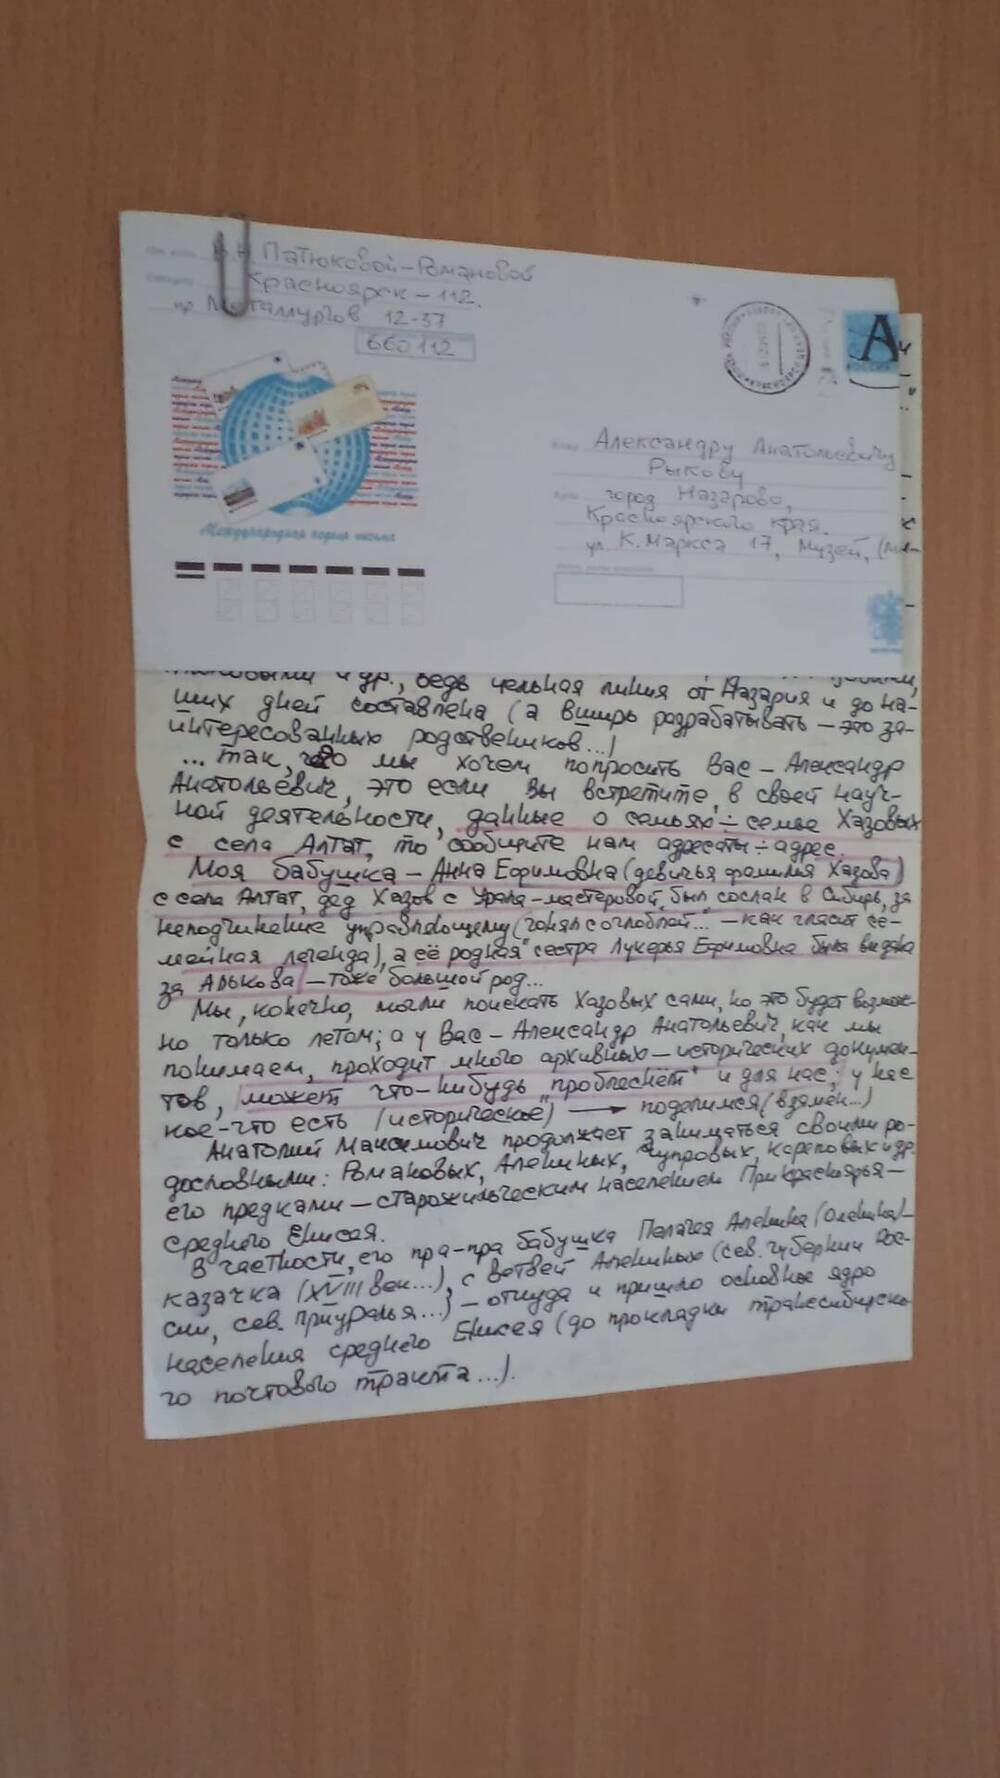 От кого Патюковой-Романовой
Откуда Красноярск-112.
пр. Металлургов 12-37
660112
А
РОССИЯ
Международная неделя письма
Кому Александру Анатольевичу
Рыкову
Куда город Назарово,
Красноярского края.
ул. К. Маркса 17, Музей,
и др., ведь цельная линия от Назария и до на-
ших дней составлена (а вширь разрабатывать – это за-
интересованных родственников...)
... так, что мы хочем попросить Вас – Александр
Анатольевич, это если Вы встретите, в своей науч-
ной деятельности, данные о семьях ÷ семье Хазовых
с села Алтат, то сообщите нам адресаты ÷ адрес.
Моя бабушка – Анна Ефимовна (девичья фамилия Хазова)
с села Алтат, дед Хазов с Урала – мастеровой, был сослан в Сибирь, за
неподчинение управляющему („гонял с оглоблей..." – как гласит се-
мейная легенда), а её родная сестра Лукерья Ефимовна была выдана
за Арькова – тоже большой род...
Мы, конечно, могли поискать Хазовых сами, но это будет возмож-
но только летом; а у Вас – Александр Анатольевич, как мы
понимаем, проходит много архивных – исторических докумен-
тов, может что-нибудь „проблеснёт" и для нас; у нас
кое-что есть (историческое) → поделимся (взамен...)
Анатолий Максимович продолжает заниматься своими ро-
дословными: Романовых, Алениных, Чупровых, Кореловых и др.
его предками – старожильческим населением Прикрасноярья –
среднего Енисея.
В частности, его пра-пра бабушка Пелагея Аленина (Оленина) –
казачка (XVIII век...), с ветвей Алениных (сев. губернии Рос-
сии, сев. Приуралья...) – откуда и пришло основное ядро
населения среднего Енисея (до прокладки транссибирско-
го почтового тракта...).